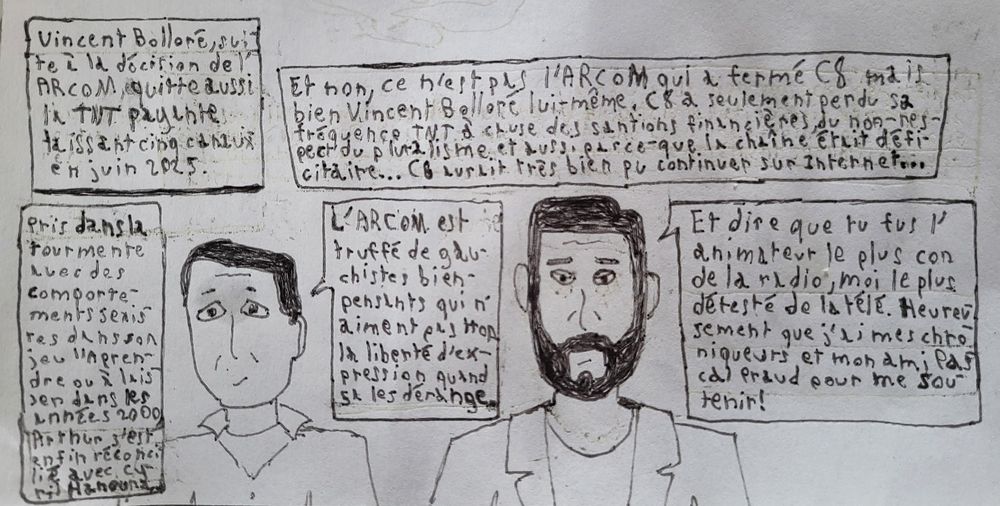 Vincent Bolloré, sui-
te à la décision de l'
ARCOM, quitte aussi
la TNT payante
laissant cinq canaux
en juin 2025.
Et non, ce n'est pas l'ARCOM qui a fermé C8 mais
bien Vincent Bolloré lui-même. C8 a seulement perdu sa
fréquence TNT à cause des santions financières, du non-res-
pect du pluralisme et aussi parce-que la chaîne était défi-
citaire... C8 aurait très bien pu continuer sur Internet...
Pris dans la
tourmente
avec des
comporte-
ments sexis
tes dans son
jeu "Apren-
dre ou à lais
ser dans les
années 2000
Arthur s'est
enfin réconci
lié avec Cy-
ril Hanouna.
L'ARCOM est
truffé de gau-
chistes bien-
pensants qui n'
aiment pas trop
la liberté d'ex-
pression quand
ça les dérange.
Et dire que tu fus l'
animateur le plus con
de la radio, moi le plus
détesté de la télé. Heureu-
sement que j'ai mes chro-
niqueurs et mon ami Pas
cal Praud pour me sou-
tenir!